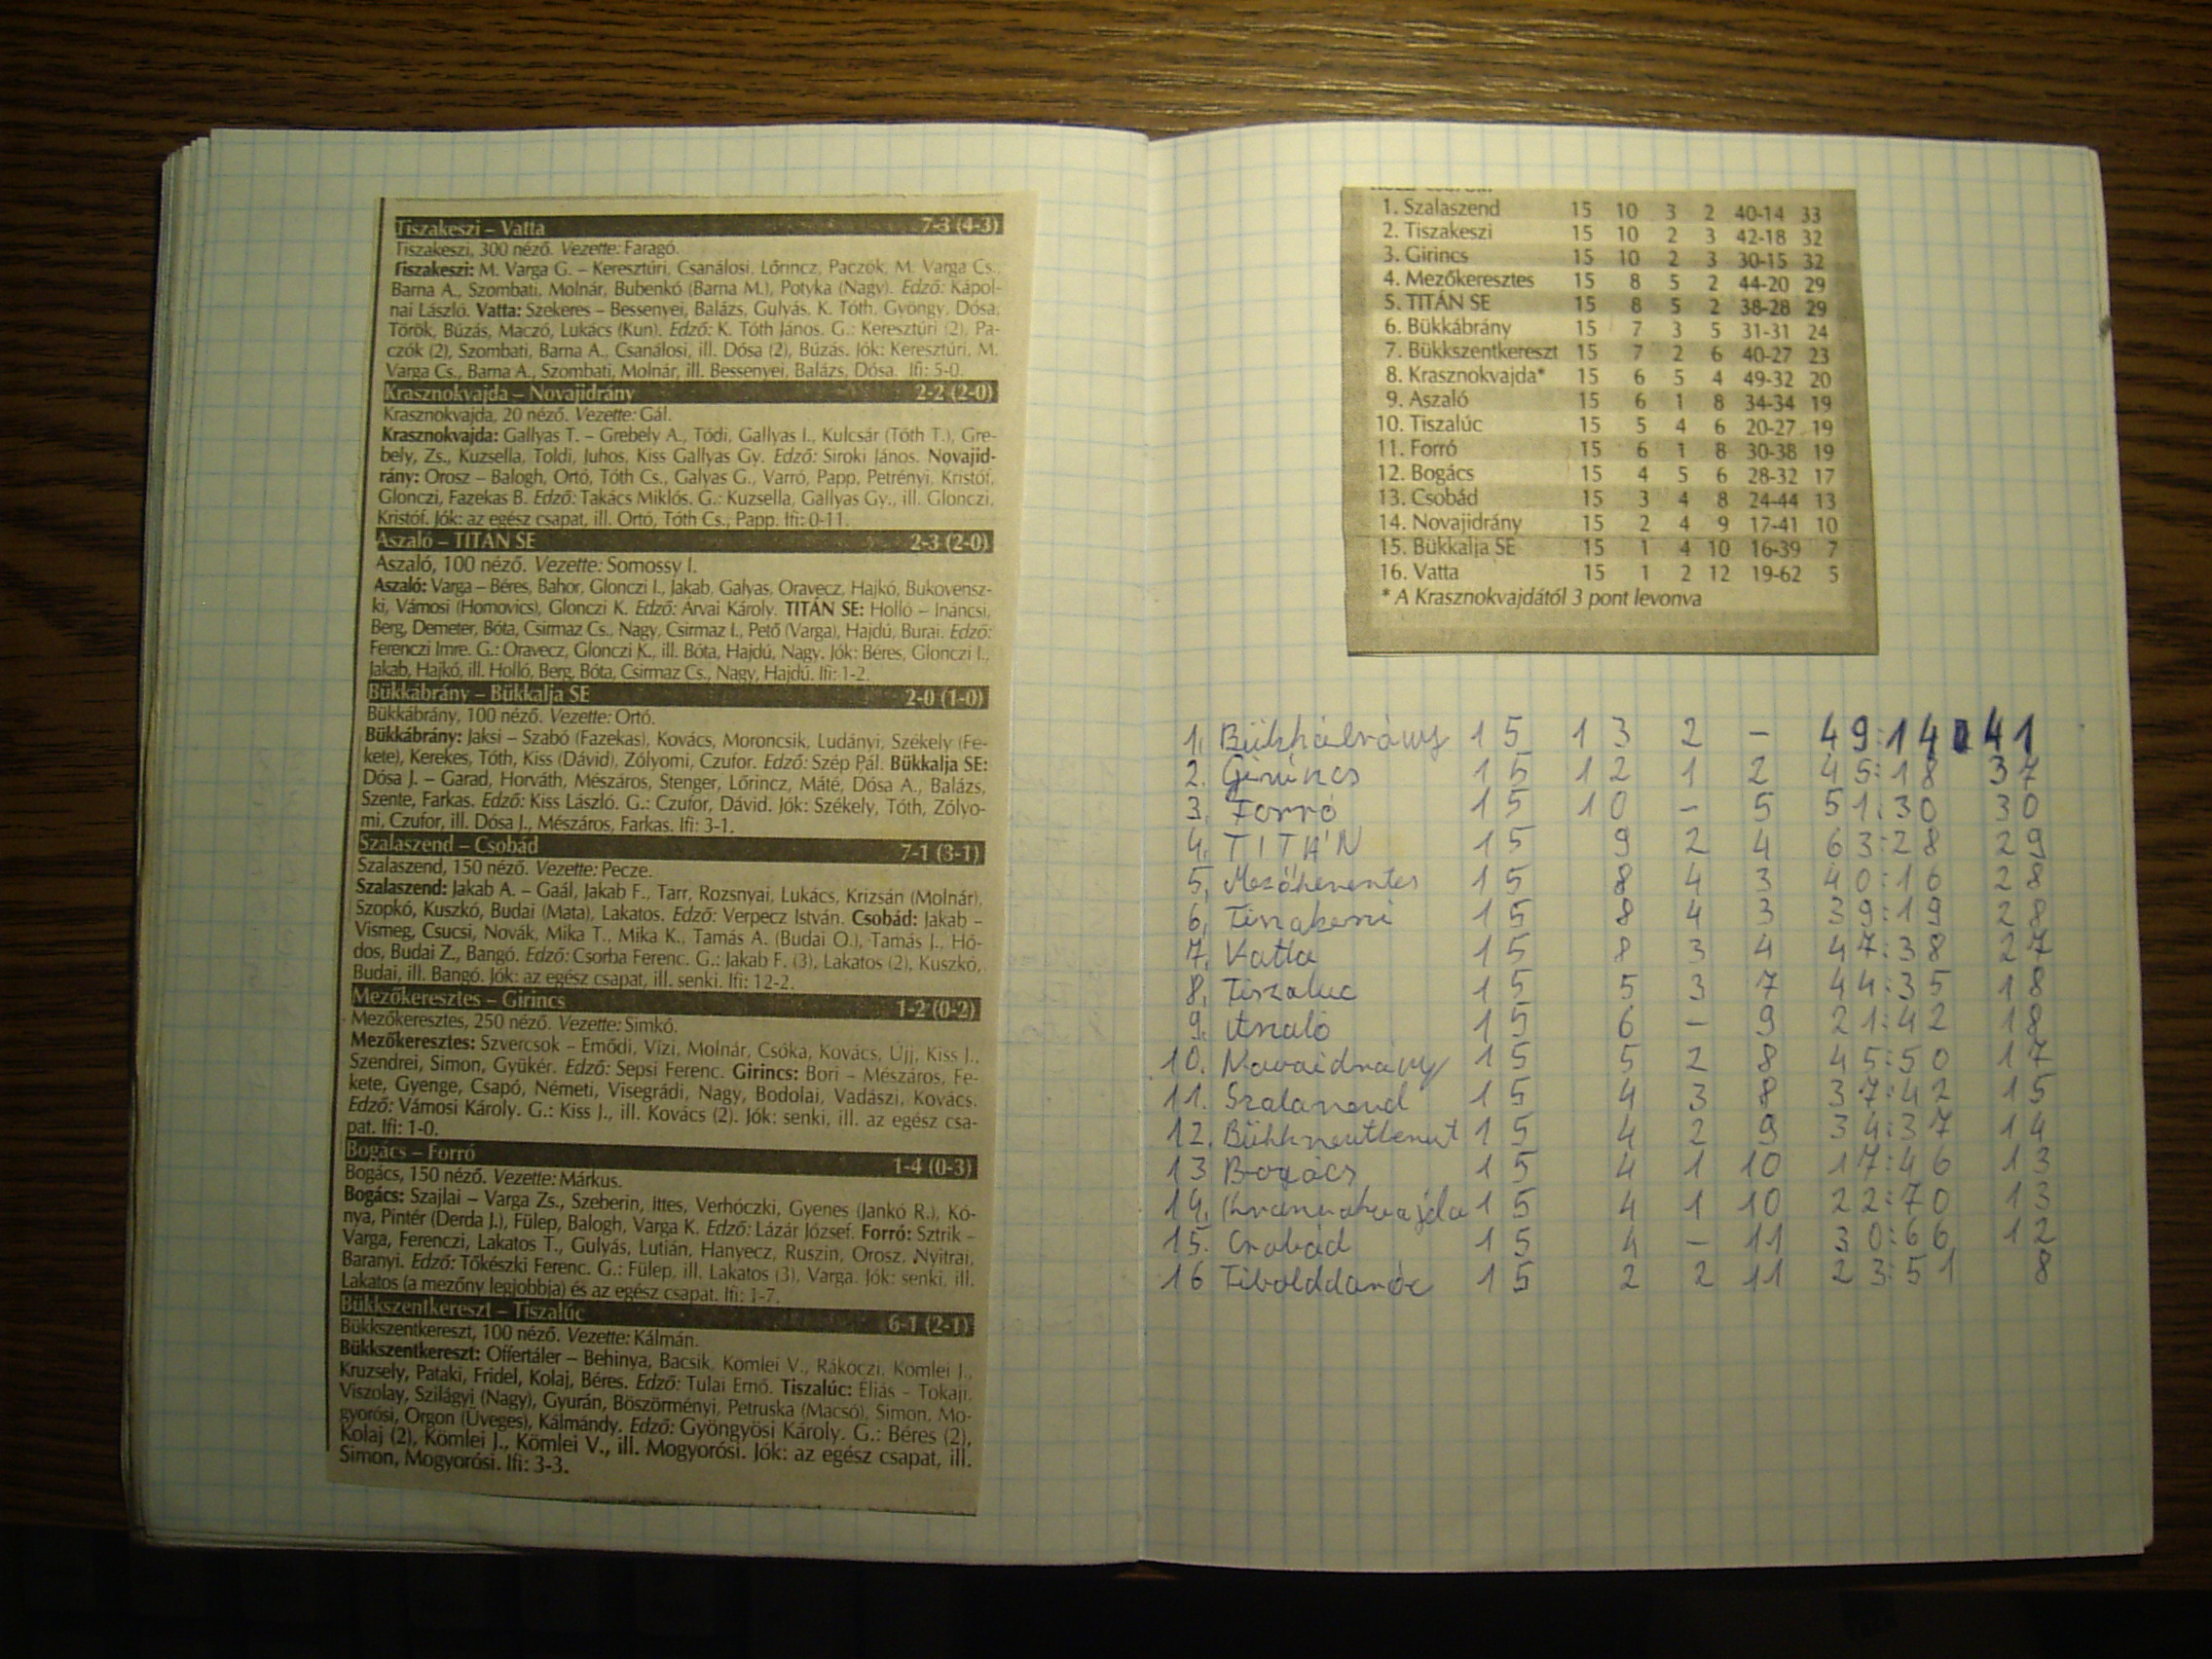 Tiszakeszi – Vatta 7-3 (4-3)
Tiszakeszi, 300 néző. Vezette: Faragó.
Tiszakeszi: M. Varga G. – Keresztúri, Csanálosi, Lőrincz, Paczók, M. Varga Cs.,
Barna A., Szombati, Molnár, Bubenkó (Barna M.), Potyka (Nagy). Edző: Kápol-
nai László. Vatta: Szekeres – Bessenyei, Balázs, Gulyás, K. Tóth, Gyöngy, Dósa,
Török, Búzás, Maczó, Lukács (Kun). Edző: K. Tóth János. G.: Keresztúri (2), Pa-
czók (2), Szombati, Barna A., Csanálosi, ill. Dósa (2), Búzás. Jók: Keresztúri, M.
Varga Cs., Barna A., Szombati, Molnár, ill. Bessenyei, Balázs, Dósa. Ifi: 5-0.
Krasznokvajda – Novajidrány 2-2 (2-0)
Krasznokvajda, 20 néző. Vezette: Gál.
Krasznokvajda: Gallyas T. – Grebely A., Tódi, Gallyas I., Kulcsár (Tóth T.), Gre-
bely, Zs., Kuzsella, Toldi, Juhos, Kiss Gallyas Gy. Edző: Siroki János. Novajid-
rány: Orosz – Balogh, Ortó, Tóth Cs., Galyas G., Varró, Papp, Petrényi, Kristóf,
Glonczi, Fazekas B. Edző: Takács Miklós. G.: Kuzsella, Gallyas Gy., ill. Glonczi,
Kristóf. Jók: az egész csapat, ill. Ortó, Tóth Cs., Papp. Ifi: 0-11.
Aszaló – TITÁN SE 2-3 (2-0)
Aszaló, 100 néző. Vezette: Somossy I.
Aszaló: Varga – Béres, Bahor, Glonczi I., Jakab, Galyas, Oravecz, Hajkó, Bukovensz-
ki, Vámosi (Homovics), Glonczi K. Edző: Árvai Károly. TITÁN SE: Holló – Ináncsi,
Berg, Demeter, Bóta, Csirmaz Cs., Nagy, Csirmaz I., Pető (Varga), Hajdú, Burai. Edző:
Ferenczi Imre. G.: Oravecz, Glonczi K., ill. Bóta, Hajdú, Nagy. Jók: Béres, Glonczi I.,
Jakab, Hajkó, ill. Holló, Berg, Bóta, Csirmaz Cs., Nagy, Hajdú. Ifi: 1-2.
Bükkábrány – Bükkalja SE 2-0 (1-0)
Bükkábrány, 100 néző. Vezette: Ortó.
Bükkábrány: Jaksi – Szabó (Fazekas), Kovács, Moroncsik, Ludányi, Székely (Fe-
kete), Kerekes, Tóth, Kiss (Dávid), Zólyomi, Czufor. Edző: Szép Pál. Bükkalja SE:
Dósa J. – Garad, Horváth, Mészáros, Stenger, Lőrincz, Máté, Dósa A., Balázs,
Szente, Farkas. Edző: Kiss László. G.: Czufor, Dávid. Jók: Székely, Tóth, Zólyo-
mi, Czufor, ill. Dósa J., Mészáros, Farkas. Ifi: 3-1.
Szalaszend – Csobád 7-1 (3-1)
Szalaszend, 150 néző. Vezette: Pecze.
Szalaszend: Jakab A. – Gaál, Jakab F., Tarr, Rozsnyai, Lukács, Krizsán (Molnár),
Szopkó, Kuszkó, Budai (Mata), Lakatos. Edző: Verpecz István. Csobád: Jakab –
Vismeg, Csucsi, Novák, Mika T., Mika K., Tamás A. (Budai O.), Tamás J., Hó-
dos, Budai Z., Bangó. Edző: Csorba Ferenc. G.: Jakab F. (3), Lakatos (2), Kuszkó,
Budai, ill. Bangó. Jók: az egész csapat, ill. senki. Ifi: 12-2.
Mezőkeresztes – Girincs 1-2 (0-2)
Mezőkeresztes, 250 néző. Vezette: Simkó.
Mezőkeresztes: Szvercsok – Emődi, Vízi, Molnár, Csóka, Kovács, Ujj, Kiss J.,
Szendrei, Simon, Gyükér. Edző: Sepsi Ferenc. Girincs: Bori – Mészáros, Fe-
kete, Gyenge, Csapó, Németi, Visegrádi, Nagy, Bodolai, Vadászi, Kovács.
Edző: Vámosi Károly. G.: Kiss J., ill. Kovács (2). Jók: senki, ill. az egész csa-
pat. Ifi: 1-0.
Bogács – Forró 1-4 (0-3)
Bogács, 150 néző. Vezette: Márkus.
Bogács: Szajlai – Varga Zs., Szeberin, Ittes, Verhóczki, Gyenes (Jankó R.), Kó-
nya, Pintér (Derda J.), Fülep, Balogh, Varga K. Edző: Lázár József. Forró: Sztrik –
Varga, Ferenczi, Lakatos T., Gulyás, Lutián, Hanyecz, Ruszin, Orosz, Nyitrai,
Baranyi. Edző: Tőkészki Ferenc. G.: Fülep, ill. Lakatos (3), Varga. Jók: senki, ill.
Lakatos (a mezőny legjobbja) és az egész csapat. Ifi: 1-7.
Bükkszentkereszt – Tiszalúc 6-1 (2-1)
Bükkszentkereszt, 100 néző. Vezette: Kálmán.
Bükkszentkereszt: Offertáler – Behinya, Bacsik, Kömlei V., Rákóczi, Kömlei J.,
Kruzsely, Pataki, Fridel, Kolaj, Béres. Edző: Tulai Ernő. Tiszalúc: Éliás – Tokaji,
Viszolay, Szilágyi (Nagy), Gyurán, Böszörményi, Petruska (Macsó), Simon, Mo-
gyorósi, Orgon (Üveges), Kálmándy. Edző: Gyöngyösi Károly. G.: Béres (2),
Kolaj (2), Kömlei J., Kömlei V., ill. Mogyorósi. Jók: az egész csapat, ill.
Simon, Mogyorósi. Ifi: 3-3.
1. Szalaszend 15 10 3 2 40-14 33
2. Tiszakeszi 15 10 2 3 42-18 32
3. Girincs 15 10 2 3 30-15 32
4. Mezőkeresztes 15 8 5 2 44-20 29
5. TITÁN SE 15 8 5 2 38-28 29
6. Bükkábrány 15 7 3 5 31-31 24
7. Bükkszentkereszt 15 7 2 6 40-27 23
8. Krasznokvajda* 15 6 5 4 49-32 20
9. Aszaló 15 6 1 8 34-34 19
10. Tiszalúc 15 5 4 6 20-27 19
11. Forró 15 6 1 8 30-38 19
12. Bogács 15 4 5 6 28-32 17
13. Csobád 15 3 4 8 24-44 13
14. Novajidrány 15 2 4 9 17-41 10
15. Bükkalja SE 15 1 4 10 16-39 7
16. Vatta 15 1 2 12 19-62 5
* A Krasznokvajdától 3 pont levonva
1. Bükkábrány 15 13 2 – 49:14 41
2. Girincs 15 12 1 2 45:18 37
3. Forró 15 10 – 5 51:30 30
4. TITÁN 15 9 2 4 63:28 29
5. Mezőkeresztes 15 8 4 3 40:16 28
6. Tiszakeszi 15 8 4 3 39:19 28
7. Vatta 15 8 3 4 47:38 27
8. Tiszaluc 15 5 3 7 44:35 18
9. Aszaló 15 6 – 9 21:42 18
10. Novaidrány 15 5 2 8 45:50 17
11. Szalaszend 15 4 3 8 37:42 15
12. Bükkszentkereszt 15 4 2 9 34:37 14
13 Bogács 15 4 1 10 17:46 13
14. Krasznokvajda 15 4 1 10 22:70 13
15. Csobád 15 4 – 11 30:66 12
16 Tibolddaróc 15 2 2 11 23:51 8